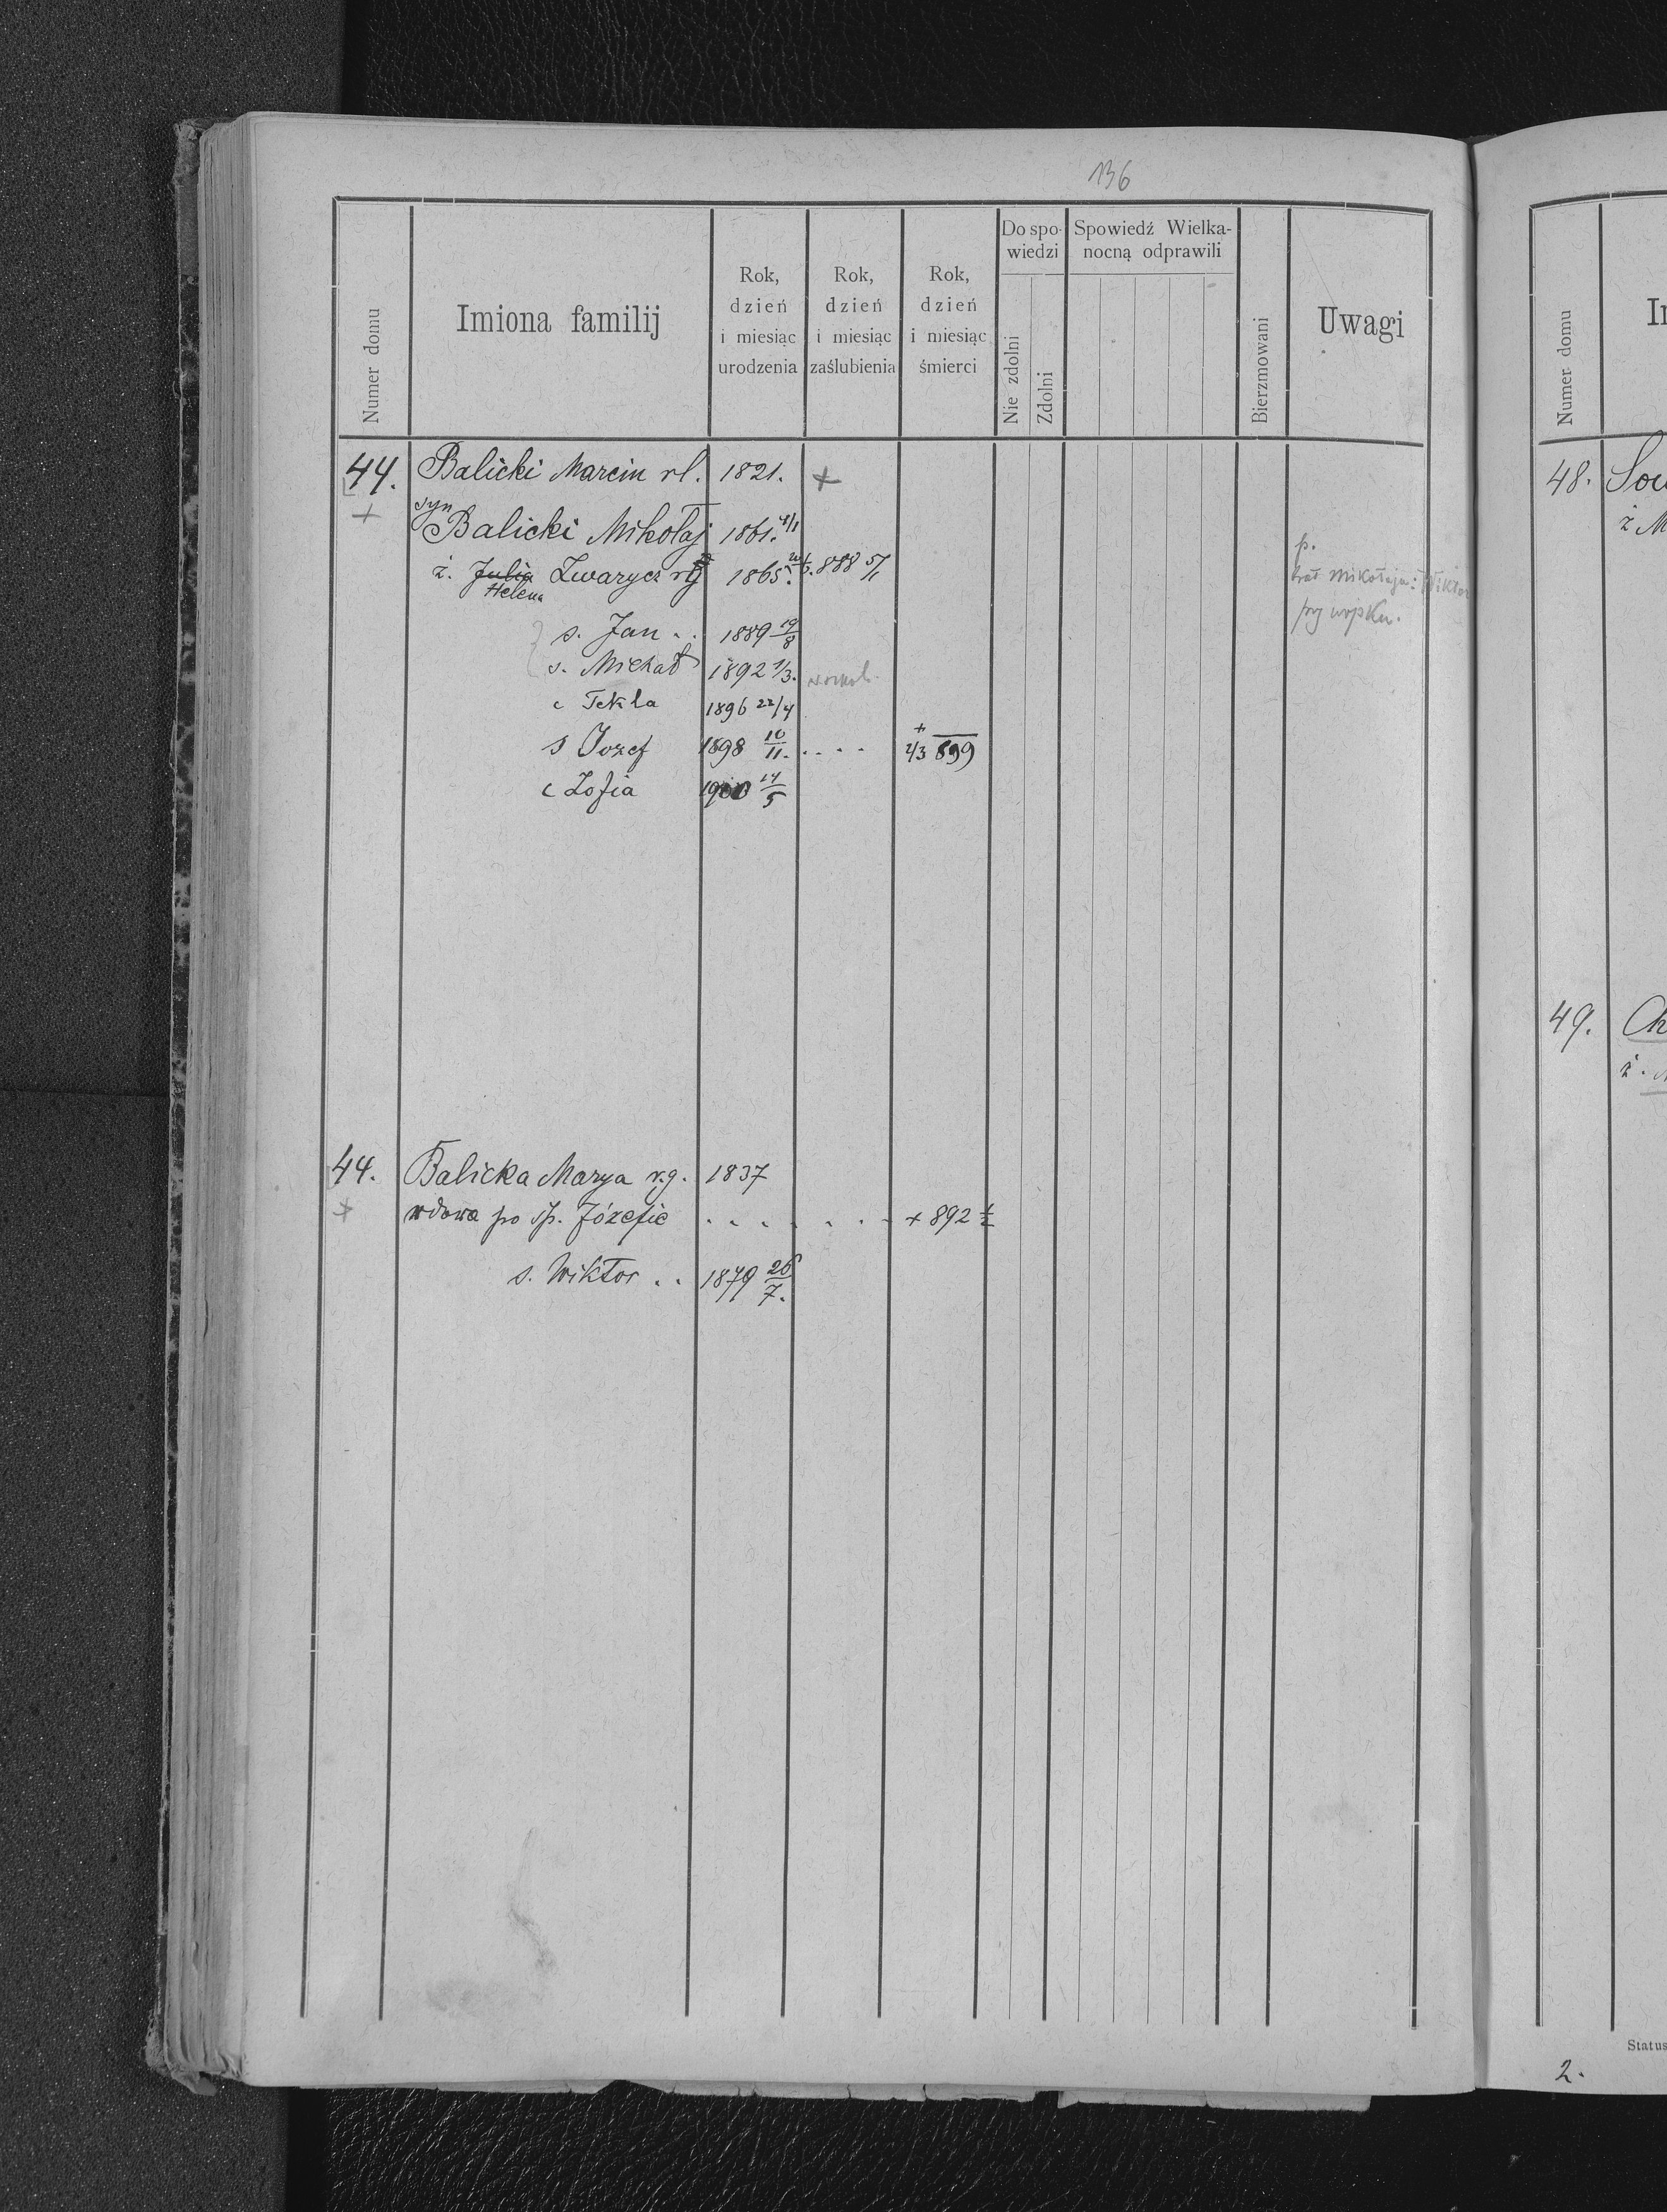 136
Numer domu
Imiona familij
Rok,
dzień
i miesiąc
urodzenia
Rok,
dzień
i miesiąc
zaślubienia
Rok,
dzień
i miesiąc
śmierci
Do spo-
wiedzi
Nie zdolni
Zdolni
Spowiedź Wielka-
nocną odprawili
Bierzmowani
Uwagi
44. Balicki Marcin rl. 1821. +
+ syn
Balicki Mikołaj 1861.
ż. Julia Zwarycz 1865. 888 5/1
Helena
p.
brat Mikołaja: Wiktor
przy wojsku.
s. Jan .. 1889 19/8
s. Michał 1892 1/3.
c Tekla 1896 22/4
s Jozef 1898 10/11. .... + 2/3 899
c Zofia 1900 14/5
44. Balicka Marya r.g. 1837
+ wdowa po śp. Józefie . . . . . . + 892
s. Wiktor .. 1879 26/7.
Numer domu
48. Sow
ż M
49. Ch
ż.
Status
2.